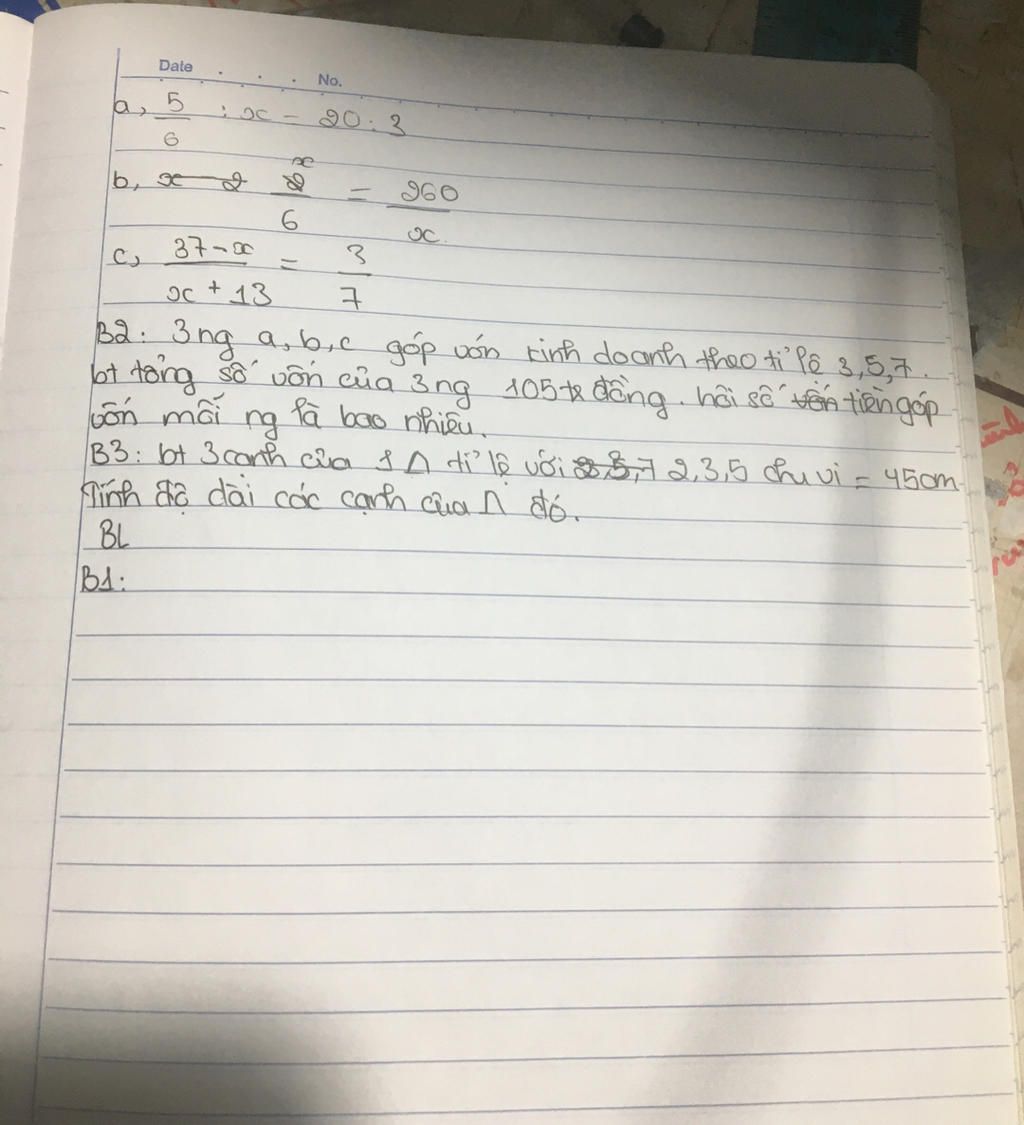 Date . . . No.
a, 5/6 : x - 20 : 3
b, x/6 = 960/x
c, 37-x/x+13 = 3/7
B2: 3 ng a, b, c góp vốn kinh doanh theo tỉ lệ 3,5,7.
bt tổng số vốn của 3 ng 105 tr đồng. hỏi số tiền góp
vốn mỗi ng là bao nhiêu.
B3: bt 3 cạnh của 1 Δ tỉ lệ với 2,3,5 chu vi = 45cm
Tính độ dài các cạnh của Δ đó.
BL
B1: